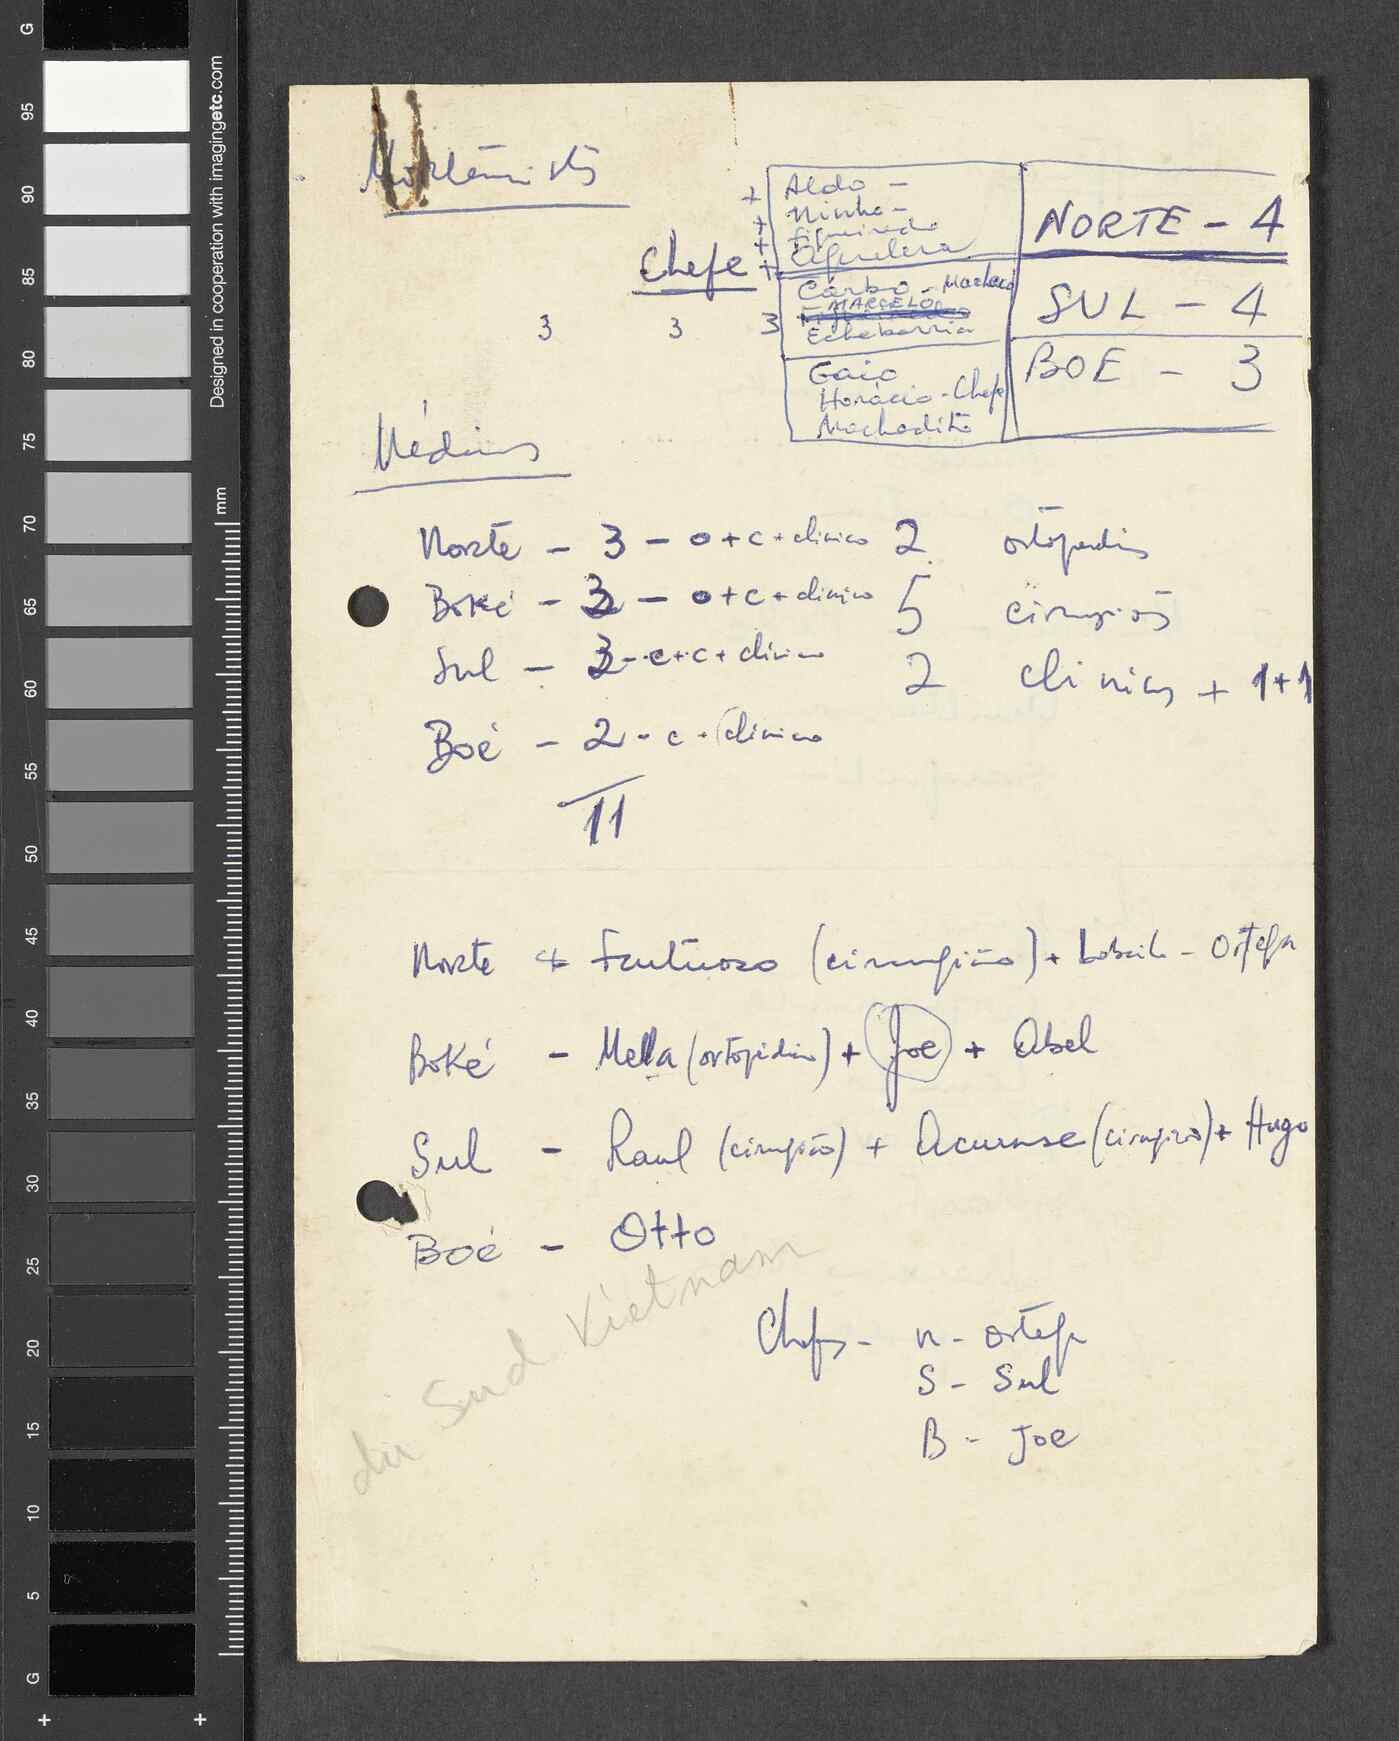 Morteiristas
Chefe
3 3 3
+ Aldo -
+ Ninho -
+ Figueiredo
+
Cárbo - Machado
MARCELO
Echebarria
Gaio
Horácio - Chefe
Machadito
NORTE - 4
SUL - 4
BOE - 3
Médicos
Norte - 3 - o + c + clinico
Boké - 3 - o + c + clinico
Sul - 3 - c + c + clinico
Boé - 2 - c + clinico
11
2 ortopedis
5 cirurgiões
2 clinicos + 1+1
Norte Frutuoso (cirurgião) + - Ortega
Boké - Mella (ortopédico) + Joe + Abel
Sul - Raul (cirurgião) + Acurense (cirurgião) + Hugo
Boé - Otto
du Sud Vietnam
Chefes - n - Ortega
S - Sul
B - Joe
G
95
90
85
80
75
70
65
60
55
50
45
40
35
30
25
20
15
10
5
G
mm
Designed in cooperation with imagingetc.com